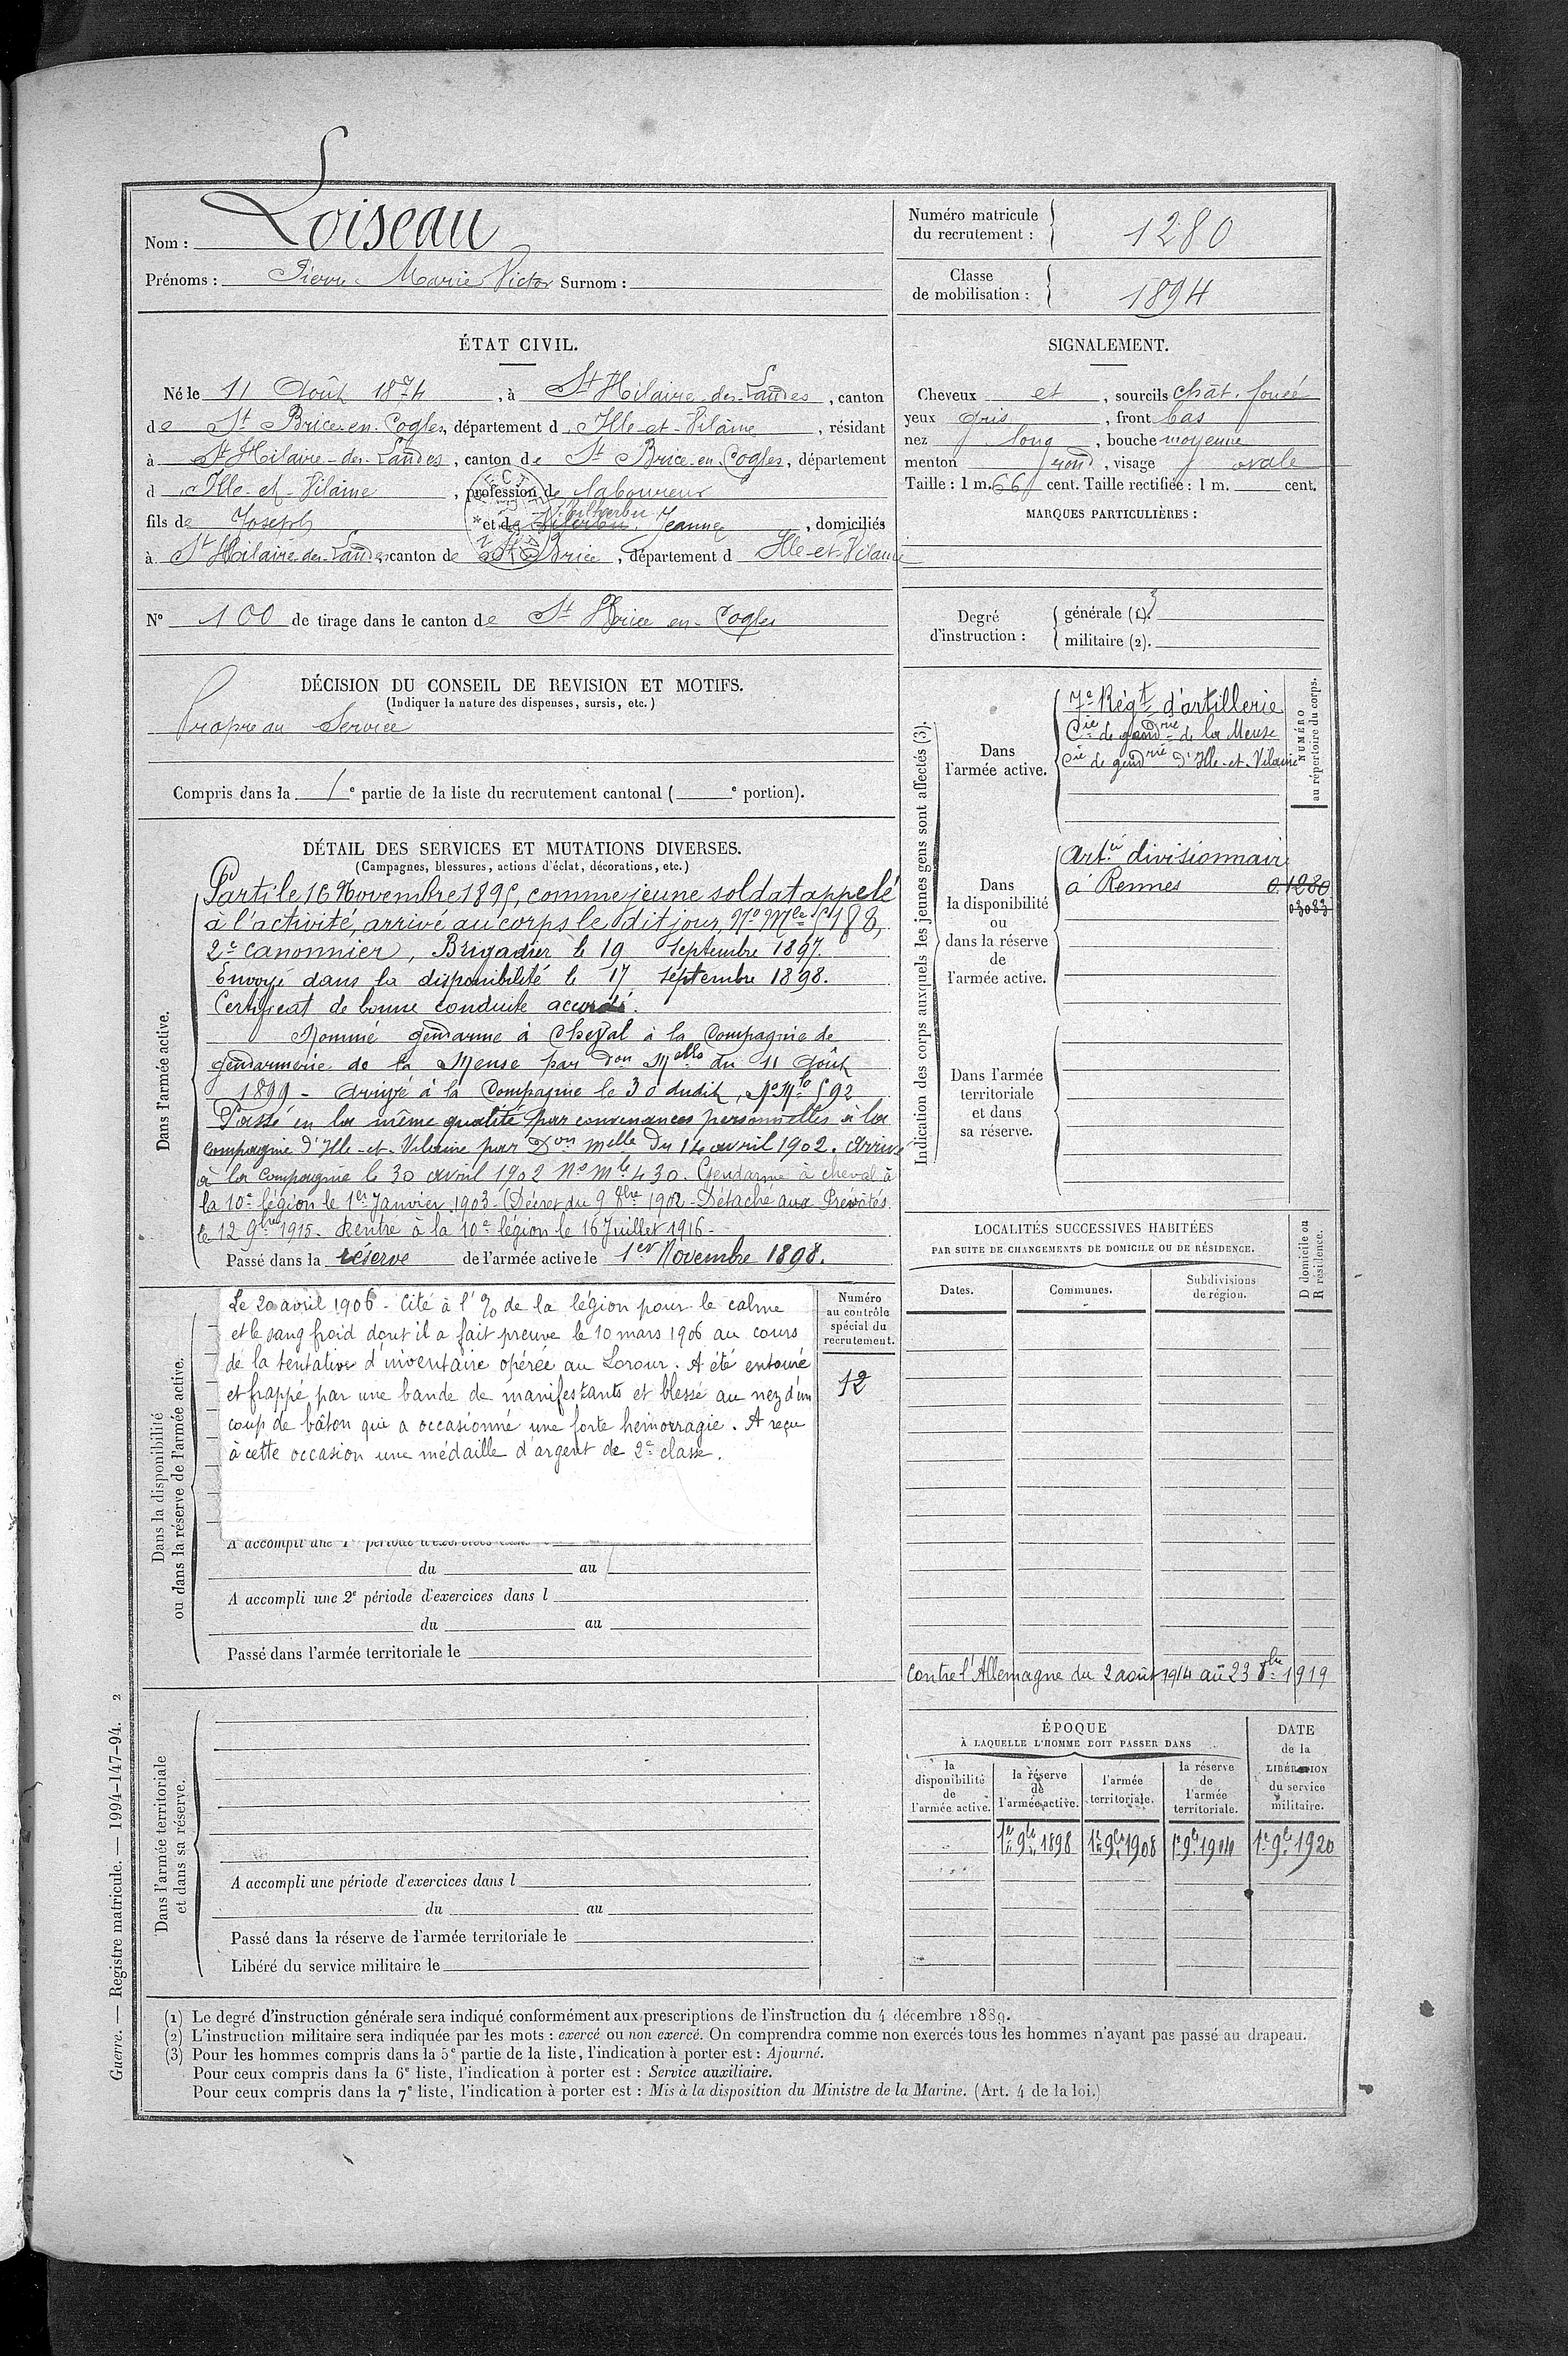 Nom : Loiseau
Prénoms : Pierre Marie Victor Surnom :
Numéro matricule
du recrutement : 1280
Classe
de mobilisation : 1894
ÉTAT CIVIL.
Né le 11 Août 1874, à St Hilaire-des-Landes, canton
de St Brice-en-Cogles, département d Ille-et-Vilaine, résidant
à St Hilaire-des-Landes, canton de St Brice-en-Cogles, département
d Ille-et-Vilaine, profession de laboureur
fils de Joseph et de Jeanne, domiciliés
à St Hilaire des Landes, canton de St Brice, département d Ille-et-Vilaine
N° 100 de tirage dans le canton de St Brice en-Cogles
SIGNALEMENT.
Cheveux et, sourcils chât. foncé
yeux gris, front bas
nez long, bouche moyenne
menton rond, visage ovale
Taille : 1 m. 66 cent. Taille rectifiée : 1 m. cent.
MARQUES PARTICULIÈRES :
Degré
d'instruction :
générale (1). 3
militaire (2).
DÉCISION DU CONSEIL DE REVISION ET MOTIFS.
(Indiquer la nature des dispenses, sursis, etc.)
Propre au Service
Compris dans la 1e partie de la liste du recrutement cantonal ( e portion).
DÉTAIL DES SERVICES ET MUTATIONS DIVERSES.
(Campagnes, blessures, actions d'éclat, décorations, etc.)
Dans l'armée active.
Parti le 16 Novembre 1895, comme jeune soldat appelé
à l'activité, arrivé au corps le dit jour, No Mle 5188,
2e canonnier, Brigadier le 19 Septembre 1897.
Envoyé dans la disponibilité le 17 septembre 1898.
Certificat de bonne conduite accordé.
Nommé gendarme à Cheval à la Compagnie de
gendarmerie de la Meuse par Don Melle du 11 Août
1899 - Arrivé à la Compagnie le 30 dudit, No Mle 592
Passé en la même qualité par convenances personnelles à la
compagnie d'Ille-et-Vilaine par Don Melle du 14 avril 1902. Arrivé
à la compagnie le 30 avril 1902 No Mle 430. Gendarme à cheval à
la 10e légion le 1er Janvier 1903 - (Décret du 9 8bre 1902 - Détaché aux Prévôtés
le 12 9bre 1915. Rentré à la 10e légion le 16 Juillet 1916 -
Passé dans la réserve de l'armée active le 1er Novembre 1898.
Indication des corps auxquels les jeunes gens sont affectés (3).
NUMÉRO
au répertoire du corps.
Dans
l'armée active.
7e Régt d'artillerie
Cie de gendrie de la Meuse
Cie de gendrie d'Ille-et-Vilaine
Dans
la disponibilité
ou
dans la réserve
de
l'armée active.
Artie divisionnaire
à Rennes 0.1280
03083
Dans l'armée
territoriale
et dans
sa réserve.
Dans la disponibilité
ou dans la réserve de l'armée active.
Le 20 avril 1906 - Cité à l'% de la légion pour le calme
et le sang froid dont il a fait preuve le 10 mars 1906 au cours
de la tentative d'inventaire opérée au Loroux. A été entouré
et frappé par une bande de manifestants et blessé au nez d'un
coup de bâton qui a occasionné une forte hémorragie. A reçu
à cette occasion une médaille d'argent de 2e classe.
Numéro
au contrôle
spécial du
recrutement.
12
A accompli une 1re période d'exercices dans l
du au
A accompli une 2e période d'exercices dans l
du au
Passé dans l'armée territoriale le
LOCALITÉS SUCCESSIVES HABITÉES
PAR SUITE DE CHANGEMENTS DE DOMICILE OU DE RÉSIDENCE.
D domicile ou
R résidence.
Dates. Communes. Subdivisions
de région.
Contre l'Allemagne du 2 août 1914 au 23 8bre 1919
Dans l'armée territoriale
et dans sa réserve.
A accompli une période d'exercices dans l
du au
Passé dans la réserve de l'armée territoriale le
Libéré du service militaire le
ÉPOQUE
À LAQUELLE L'HOMME DOIT PASSER DANS
la
disponibilité
de
l'armée active.
la réserve
de
l'armée active.
l'armée
territoriale.
la réserve
de
l'armée
territoriale.
DATE
de la
LIBÉRATION
du service
militaire.
1er 9bre 1898 1er 9bre 1908 1er 9bre 1914 1er 9bre 1920
(1) Le degré d'instruction générale sera indiqué conformément aux prescriptions de l'instruction du 4 décembre 1889.
(2) L'instruction militaire sera indiquée par les mots : exercé ou non exercé. On comprendra comme non exercés tous les hommes n'ayant pas passé au drapeau.
(3) Pour les hommes compris dans la 5e partie de la liste, l'indication à porter est : Ajourné.
Pour ceux compris dans la 6e liste, l'indication à porter est : Service auxiliaire.
Pour ceux compris dans la 7e liste, l'indication à porter est : Mis à la disposition du Ministre de la Marine. (Art. 4 de la loi.)
Guerre. — Registre matricule. — 1994-147-94. 2